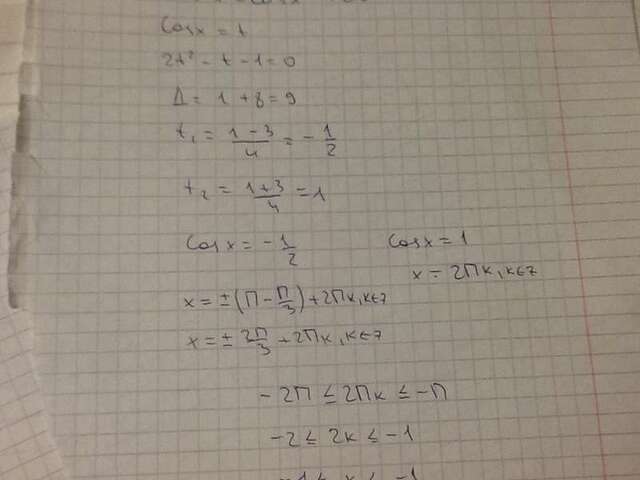 Cosx = t
2t² - t - 1 = 0
Δ = 1 + 8 = 9
t₁ = (1 - 3)/4 = - 1/2
t₂ = (1 + 3)/4 = 1
Cosx = - 1/2 Cosx = 1
x = 2Πk, k∈z
x = ±(Π - Π/3) + 2Πk, k∈z
x = ± 2Π/3 + 2Πk, k∈z
- 2Π ≤ 2Πk ≤ -Π
-2 ≤ 2k ≤ -1